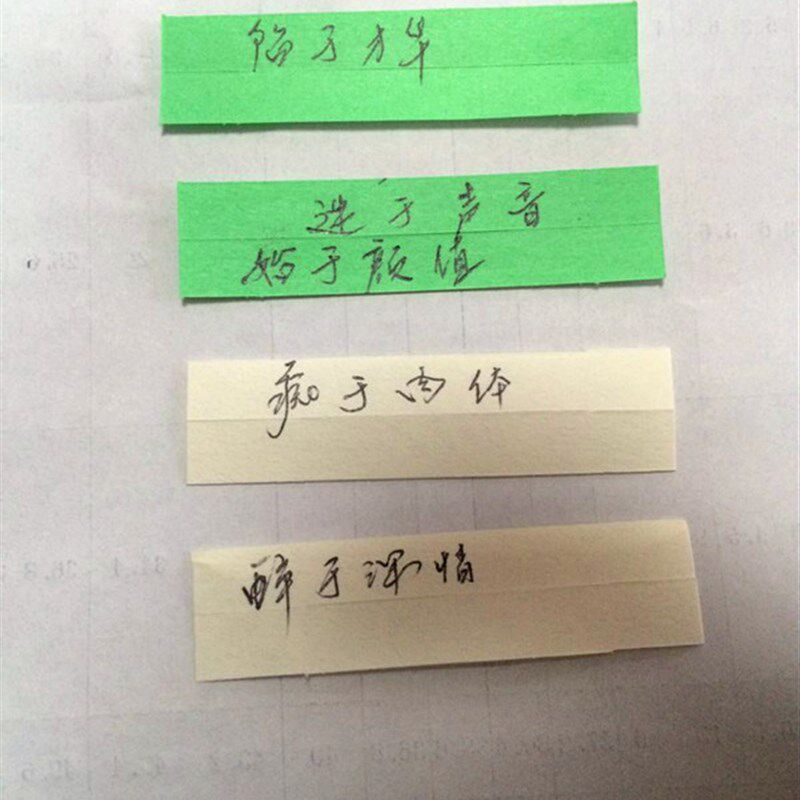 陷于才华
迷于声音
始于颜值
痴于肉体
醉于深情